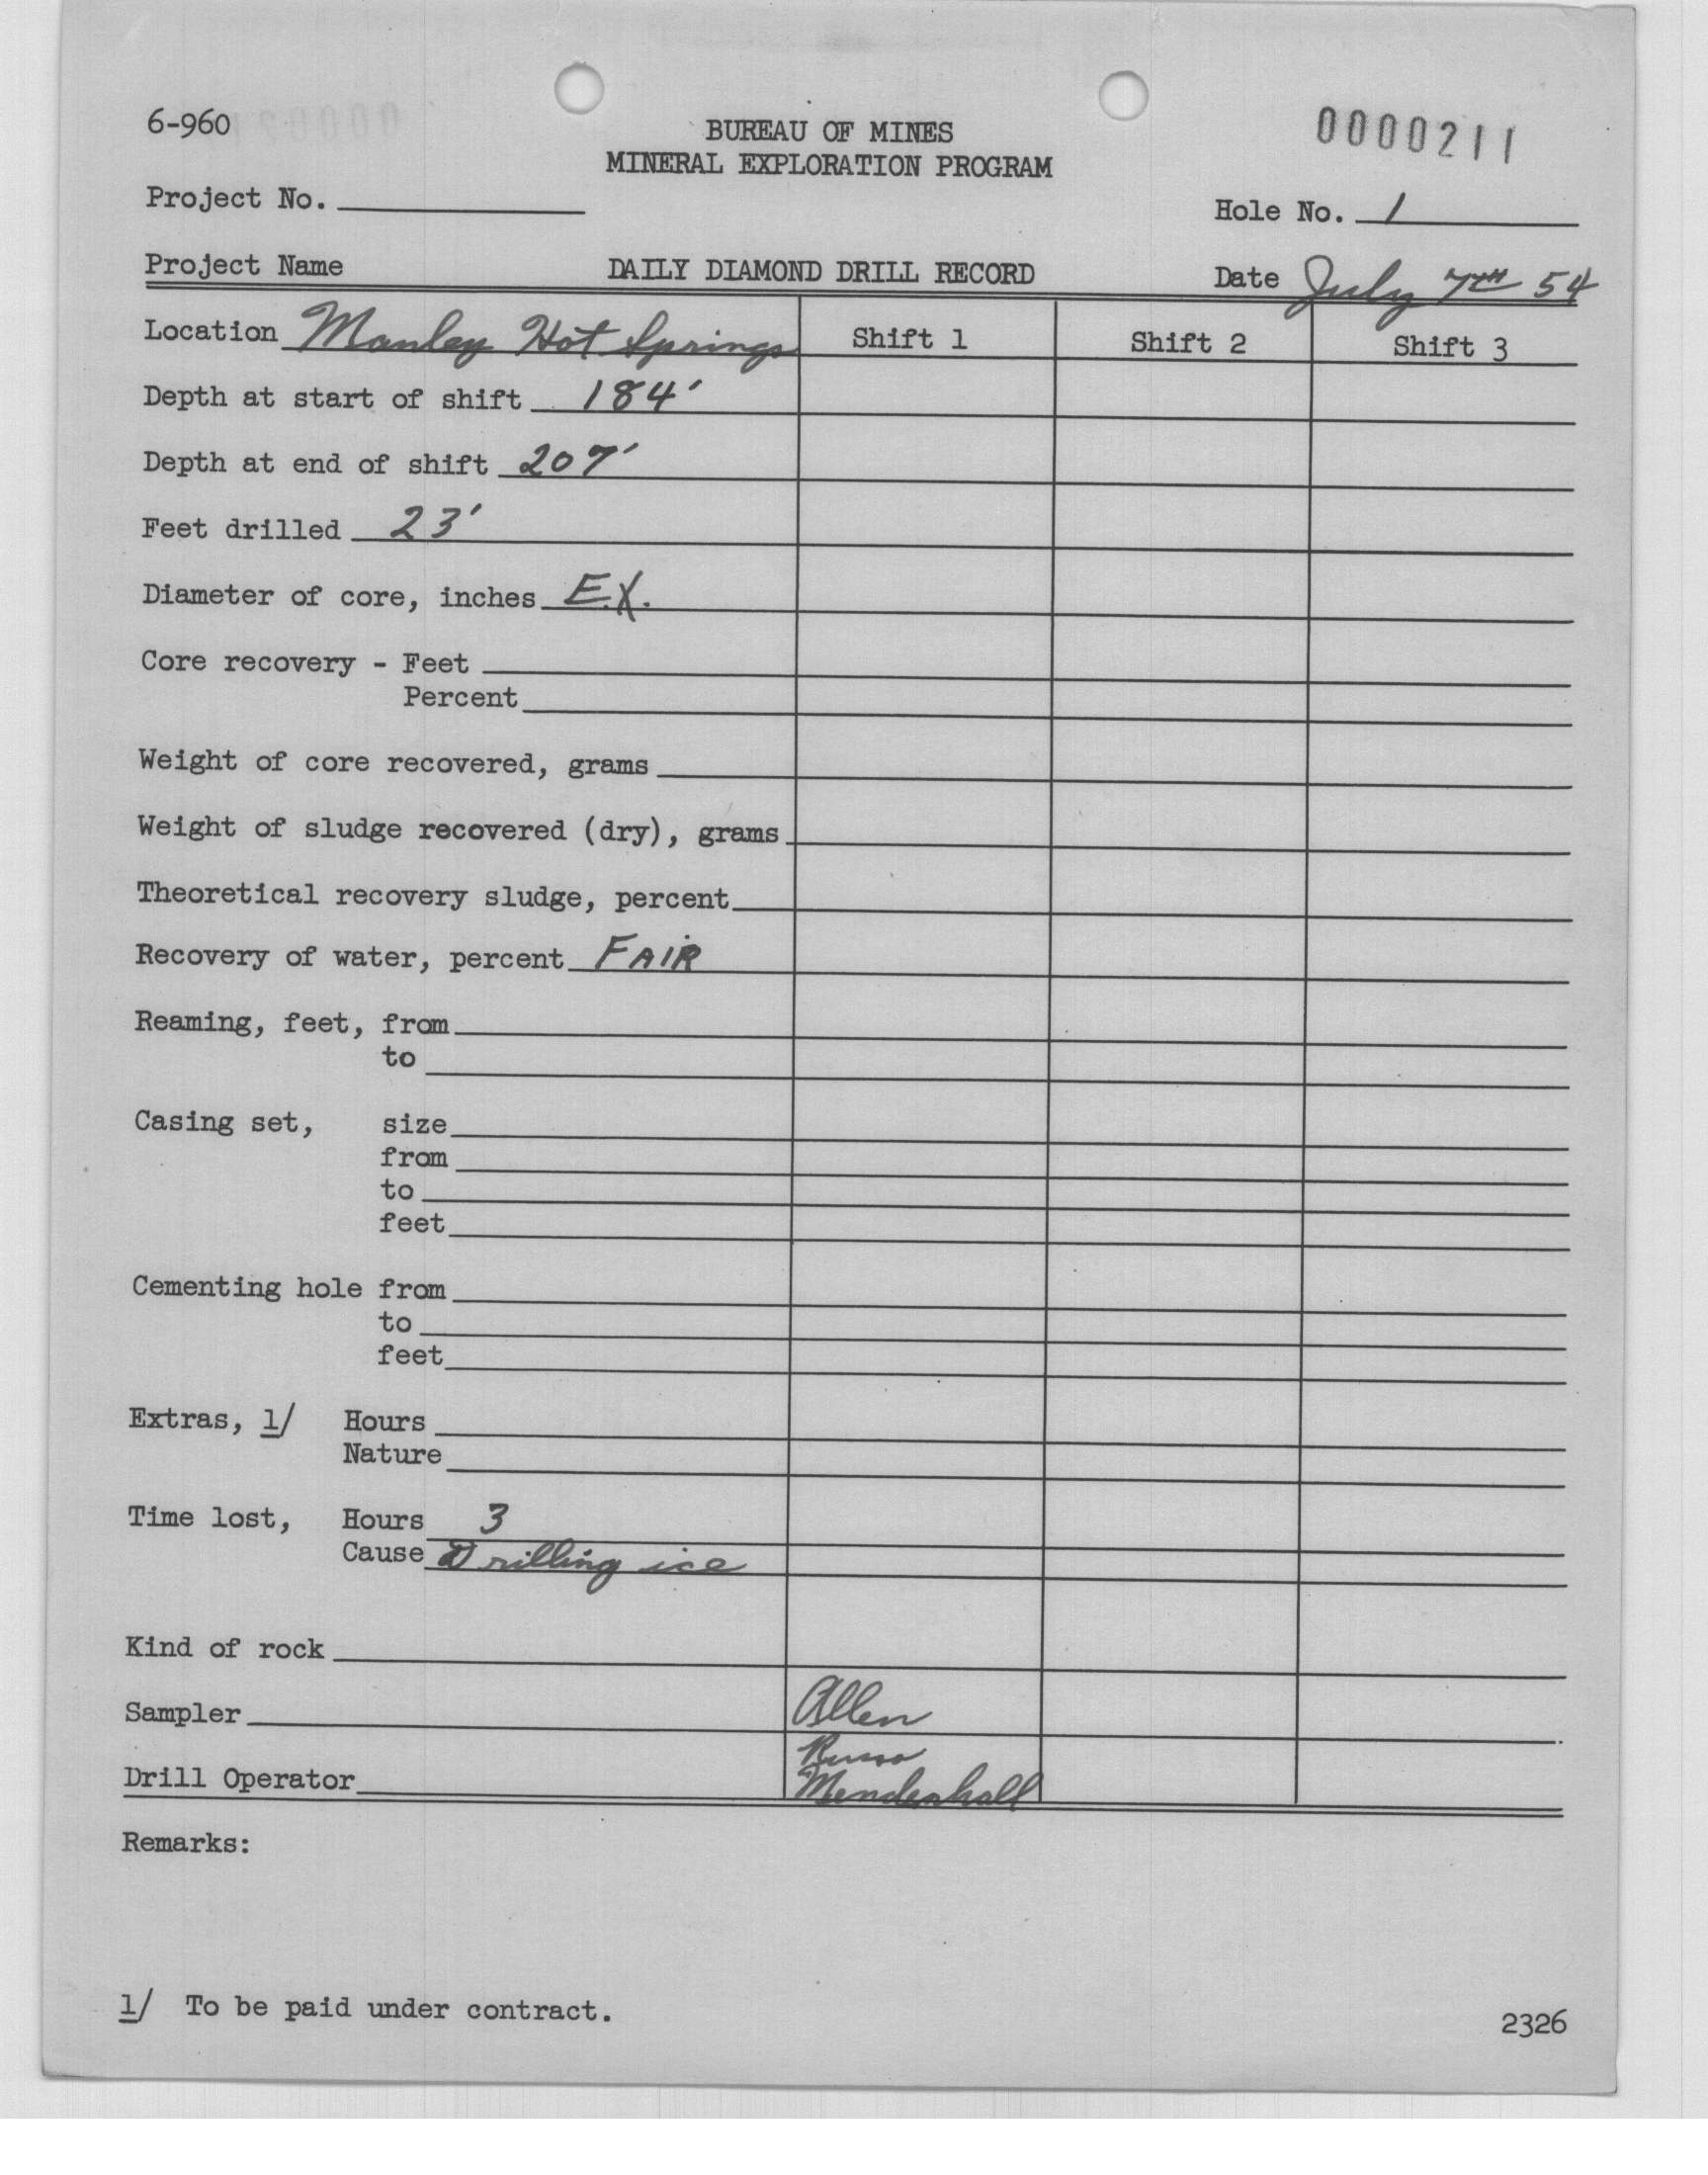 6-960
BUREAU OF MINES
0000211
MINERAL EXPLORATION PROGRAM
Project No.
Hole No. 1
Project Name DAILY DIAMOND DRILL RECORD Date July 7TH 54
Location Manley Hot Springs Shift 1 Shift 2 Shift 3
Depth at start of shift 184'
Depth at end of shift 207'
Feet drilled 23'
Diameter of core, inches E.X.
Core recovery - Feet
Percent
Weight of core recovered, grams
Weight of sludge recovered (dry), grams
Theoretical recovery sludge, percent
Recovery of water, percent FAIR
Reaming, feet, from
to
Casing set, size
from
to
feet
Cementing hole from
to
feet
Extras, 1/ Hours
Nature
Time lost, Hours 3
Cause Drilling ice
Kind of rock
Sampler Allen
Russo
Drill Operator Mendenhall
Remarks:
1/ To be paid under contract.
2326